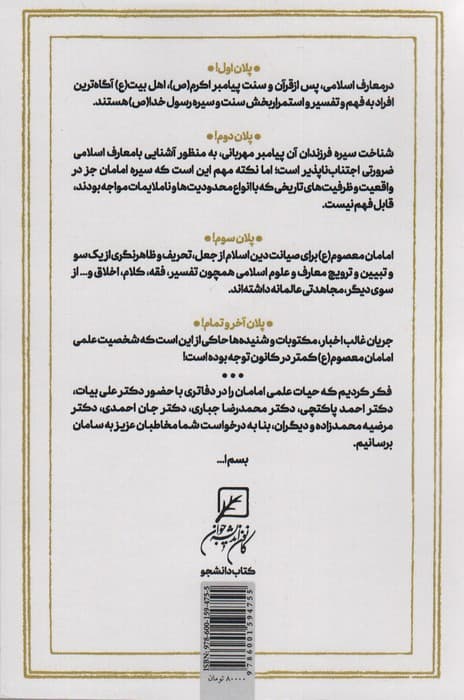 * پلان اول! *
در معارف اسلامی، پس از قرآن و سنت پیامبر اکرم(ص)، اهل بیت(ع) آگاه‌ترین
افراد به فهم و تفسیر و استمراربخش سنت و سیره رسول خدا(ص) هستند.
* پلان دوم! *
شناخت سیره فرزندان آن پیامبر مهربانی، به منظور آشنایی با معارف اسلامی
ضرورتی اجتناب‌ناپذیر است؛ اما نکته مهم این است که سیره امامان جز در
واقعیت و ظرفیت‌های تاریخی که با انواع محدودیت‌ها و ناملایمات مواجه بودند،
قابل فهم نیست.
* پلان سوم! *
امامان معصوم(ع) برای صیانت دین اسلام از جعل، تحریف و ظاهرنگری از یک سو
و تبیین و ترویج معارف و علوم اسلامی همچون تفسیر، فقه، کلام، اخلاق و... از
سوی دیگر، مجاهدتی عالمانه داشته‌اند.
* پلان آخر و تمام! *
جریان غالب اخبار، مکتوبات و شنیده‌ها حاکی از این است که شخصیت علمی
امامان معصوم(ع) کمتر در کانون توجه بوده است!
•••
فکر کردیم که حیات علمی امامان را در دفاتری با حضور دکتر علی بیات،
دکتر احمد پاکتچی، دکتر محمدرضا جباری، دکتر جان احمدی، دکتر
مرضیه محمدزاده و دیگران، بنا به درخواست شما مخاطبان عزیز به سامان
برسانیم.
بسم ا...
کانون اندیشه جوان
کتاب دانشجو
ISBN: 978-600-159-475-5
9786001594755
۸۰۰۰۰ تومان